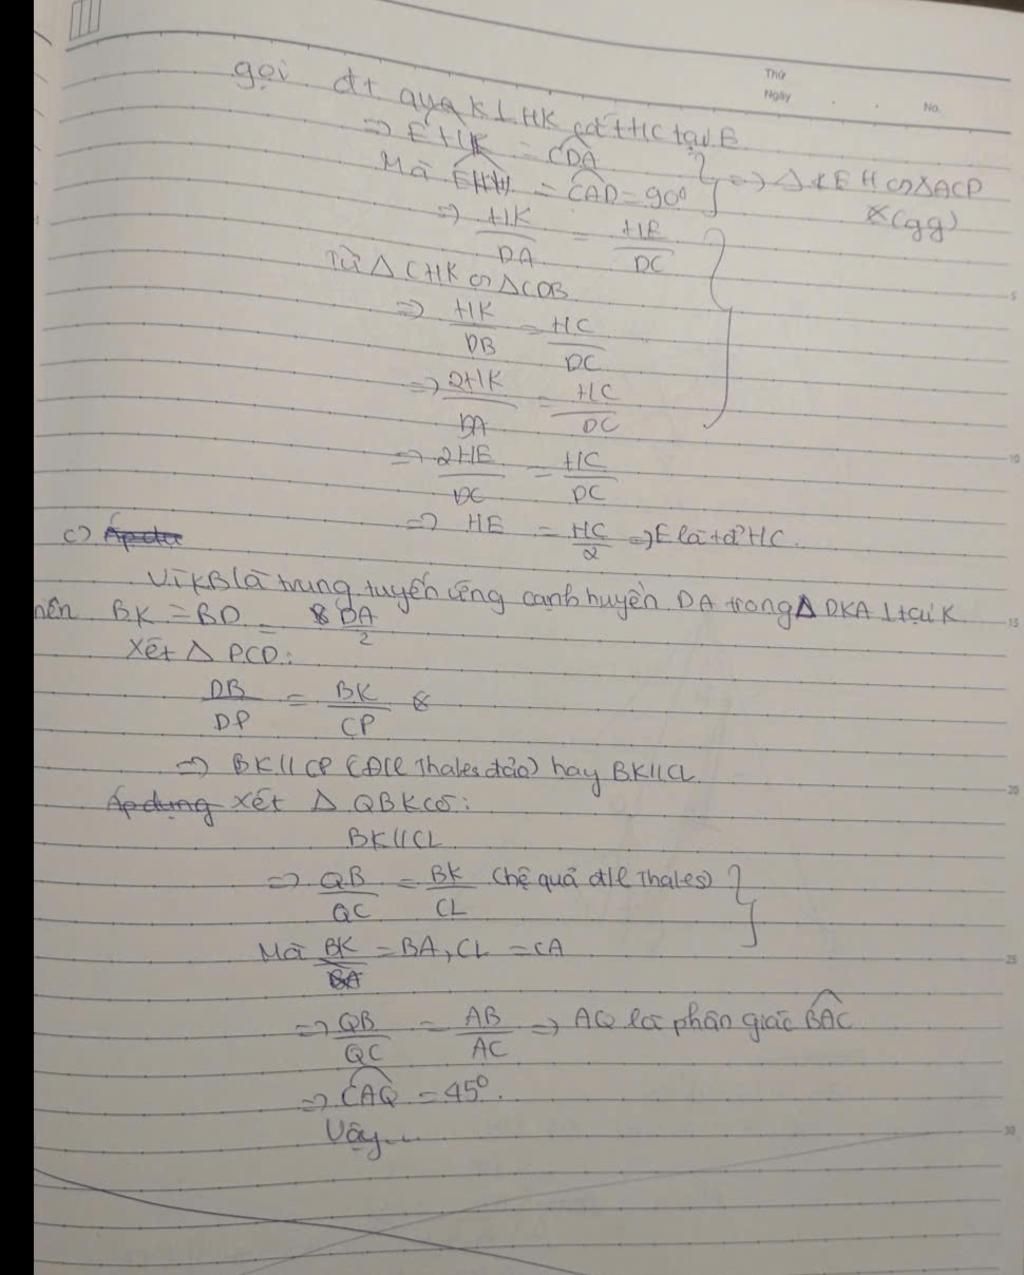 Thứ
Ngày . . No.
gọi đt qua K ⊥ HK cắt HC tại E
⇒ EHK = CDA
Mà = CAD = 90° ⇒ EH ∽ ΔACD
(gg)
⇒ HK/DA = HE/DC
Từ Δ CHK ∽ ΔCDB
⇒ HK/DB = HC/DC
⇒ 2HK/DA = HC/DC
⇒ 2HE/DC = HC/DC
⇒ HE = HC/2 ⇒ E là tđ HC.
c)
Vì KB là trung tuyến ứng cạnh huyền DA trong Δ DKA ⊥ tại K
nên BK = BD = DA/2
Xét Δ PCD:
DB/DP = BK/CP
⇒ BK // CP (Đ/l Thales đảo) hay BK // CL
Áp dụng Xét Δ QBK có:
BK // CL
⇒ QB/QC = BK/CL (hệ quả đ/l Thales)
Mà BK = BA, CL = CA
⇒ QB/QC = AB/AC ⇒ AQ là phân giác BAC
⇒ CAQ = 45°.
Vậy...
5
10
15
20
25
30